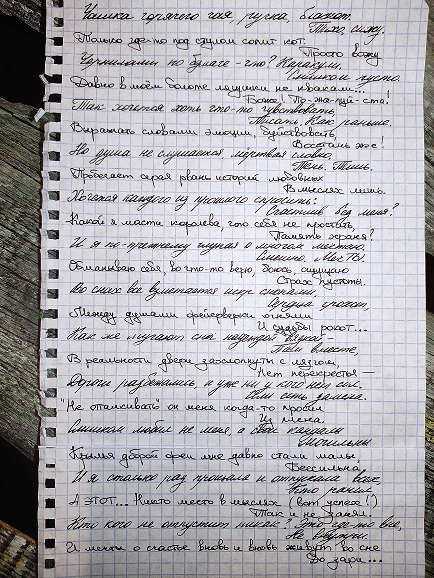 Чашка горячего чая, ручка, блокнот.
Тихо, сижу.
Только где-то под стулом сопит кот.
Просто вожу
Чернилами по бумаге - что? Каракули.
Слишком пусто.
Давно в моём болоте лягушки не квакали...
Боже! По-жа-луй-ста!
Так хочется хоть что-то чувствовать,
Писать, как раньше.
Выражать словами эмоции, буйствовать,
Восстань же!
Но душа не слушается, мёртвая словно.
Тень. Тишь.
Пробегает серая рвань историй любовных
В мыслях лишь.
Хочется каждого из прошлого спросить:
Счастлив без меня?
Какой я масти королева, что себя не простить,
Память храня?
И я по-прежнему глупая о многом мечтаю.
Смешно. Мечты.
Обманываю себя, во что-то верю, боюсь, ощущаю
Страх пустоты.
Во снах все взметается искр снопами,
Сердца грохот,
Между душами фейерверки огнями
И судьбы рокот...
Как же мучают сна надеждой
Были вместе,
В реальности двери захлопнуты с лязгом,
Нет перекрестья -
Дороги разбежались, и уже ни у кого нет сил.
Им есть замена.
"Не отпускать" он меня когда-то просил
Из плена.
Слишком любил не меня, а свои
Крылья доброй феи мне давно стали малы,
Бессильна.
И я столько раз прощала и отпускала всех,
Кто ранил
А ЭТОТ... Никто место в мыслях (вот успех!)
Так и не занял.
Кто кого не отпустит никак? Это где-то все,
Не внутри.
И мечты о счастье вновь и вновь живут во сне
До зари...